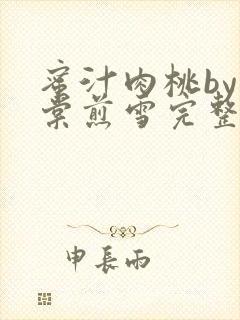 蜜汁肉桃by
棠煎雪完整
申長雨